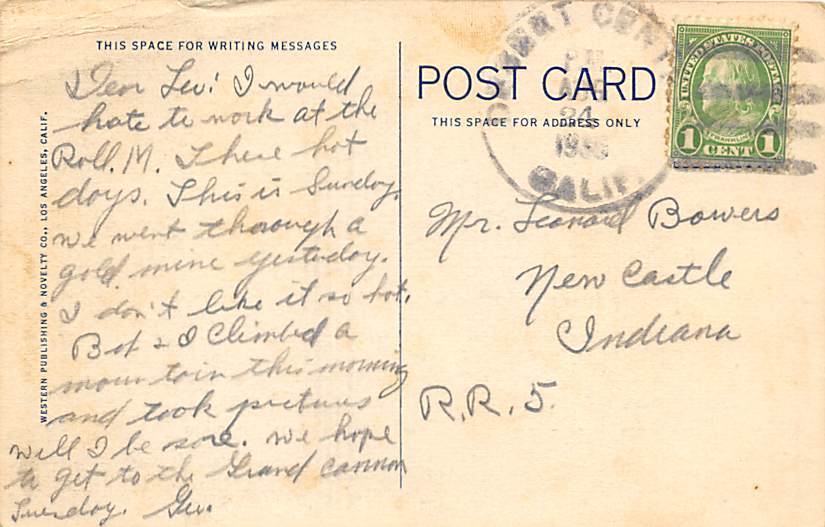 THIS SPACE FOR WRITING MESSAGES
Dear Lev: I would
hate to work at the
Roll. M. These hot
days. This is Sunday,
we went thorough a
gold mine yesterday.
I don't like it so hot.
Bob & I Climbed a
mountain this morning
and took pictures
will I be sore. we hope
to get to the Grand cannon
Tuesday. Gev.
WESTERN PUBLISHING & NOVELTY CO., LOS ANGELES, CALIF.
POST CARD
THIS SPACE FOR ADDRESS ONLY
DESERT CENT
PM
24
CALIF.
UNITED STATES POSTAGE
FRANKLIN
1 CENT 1
Mr. Leonard Bowers
New Castle
Indiana
R.R. 5.